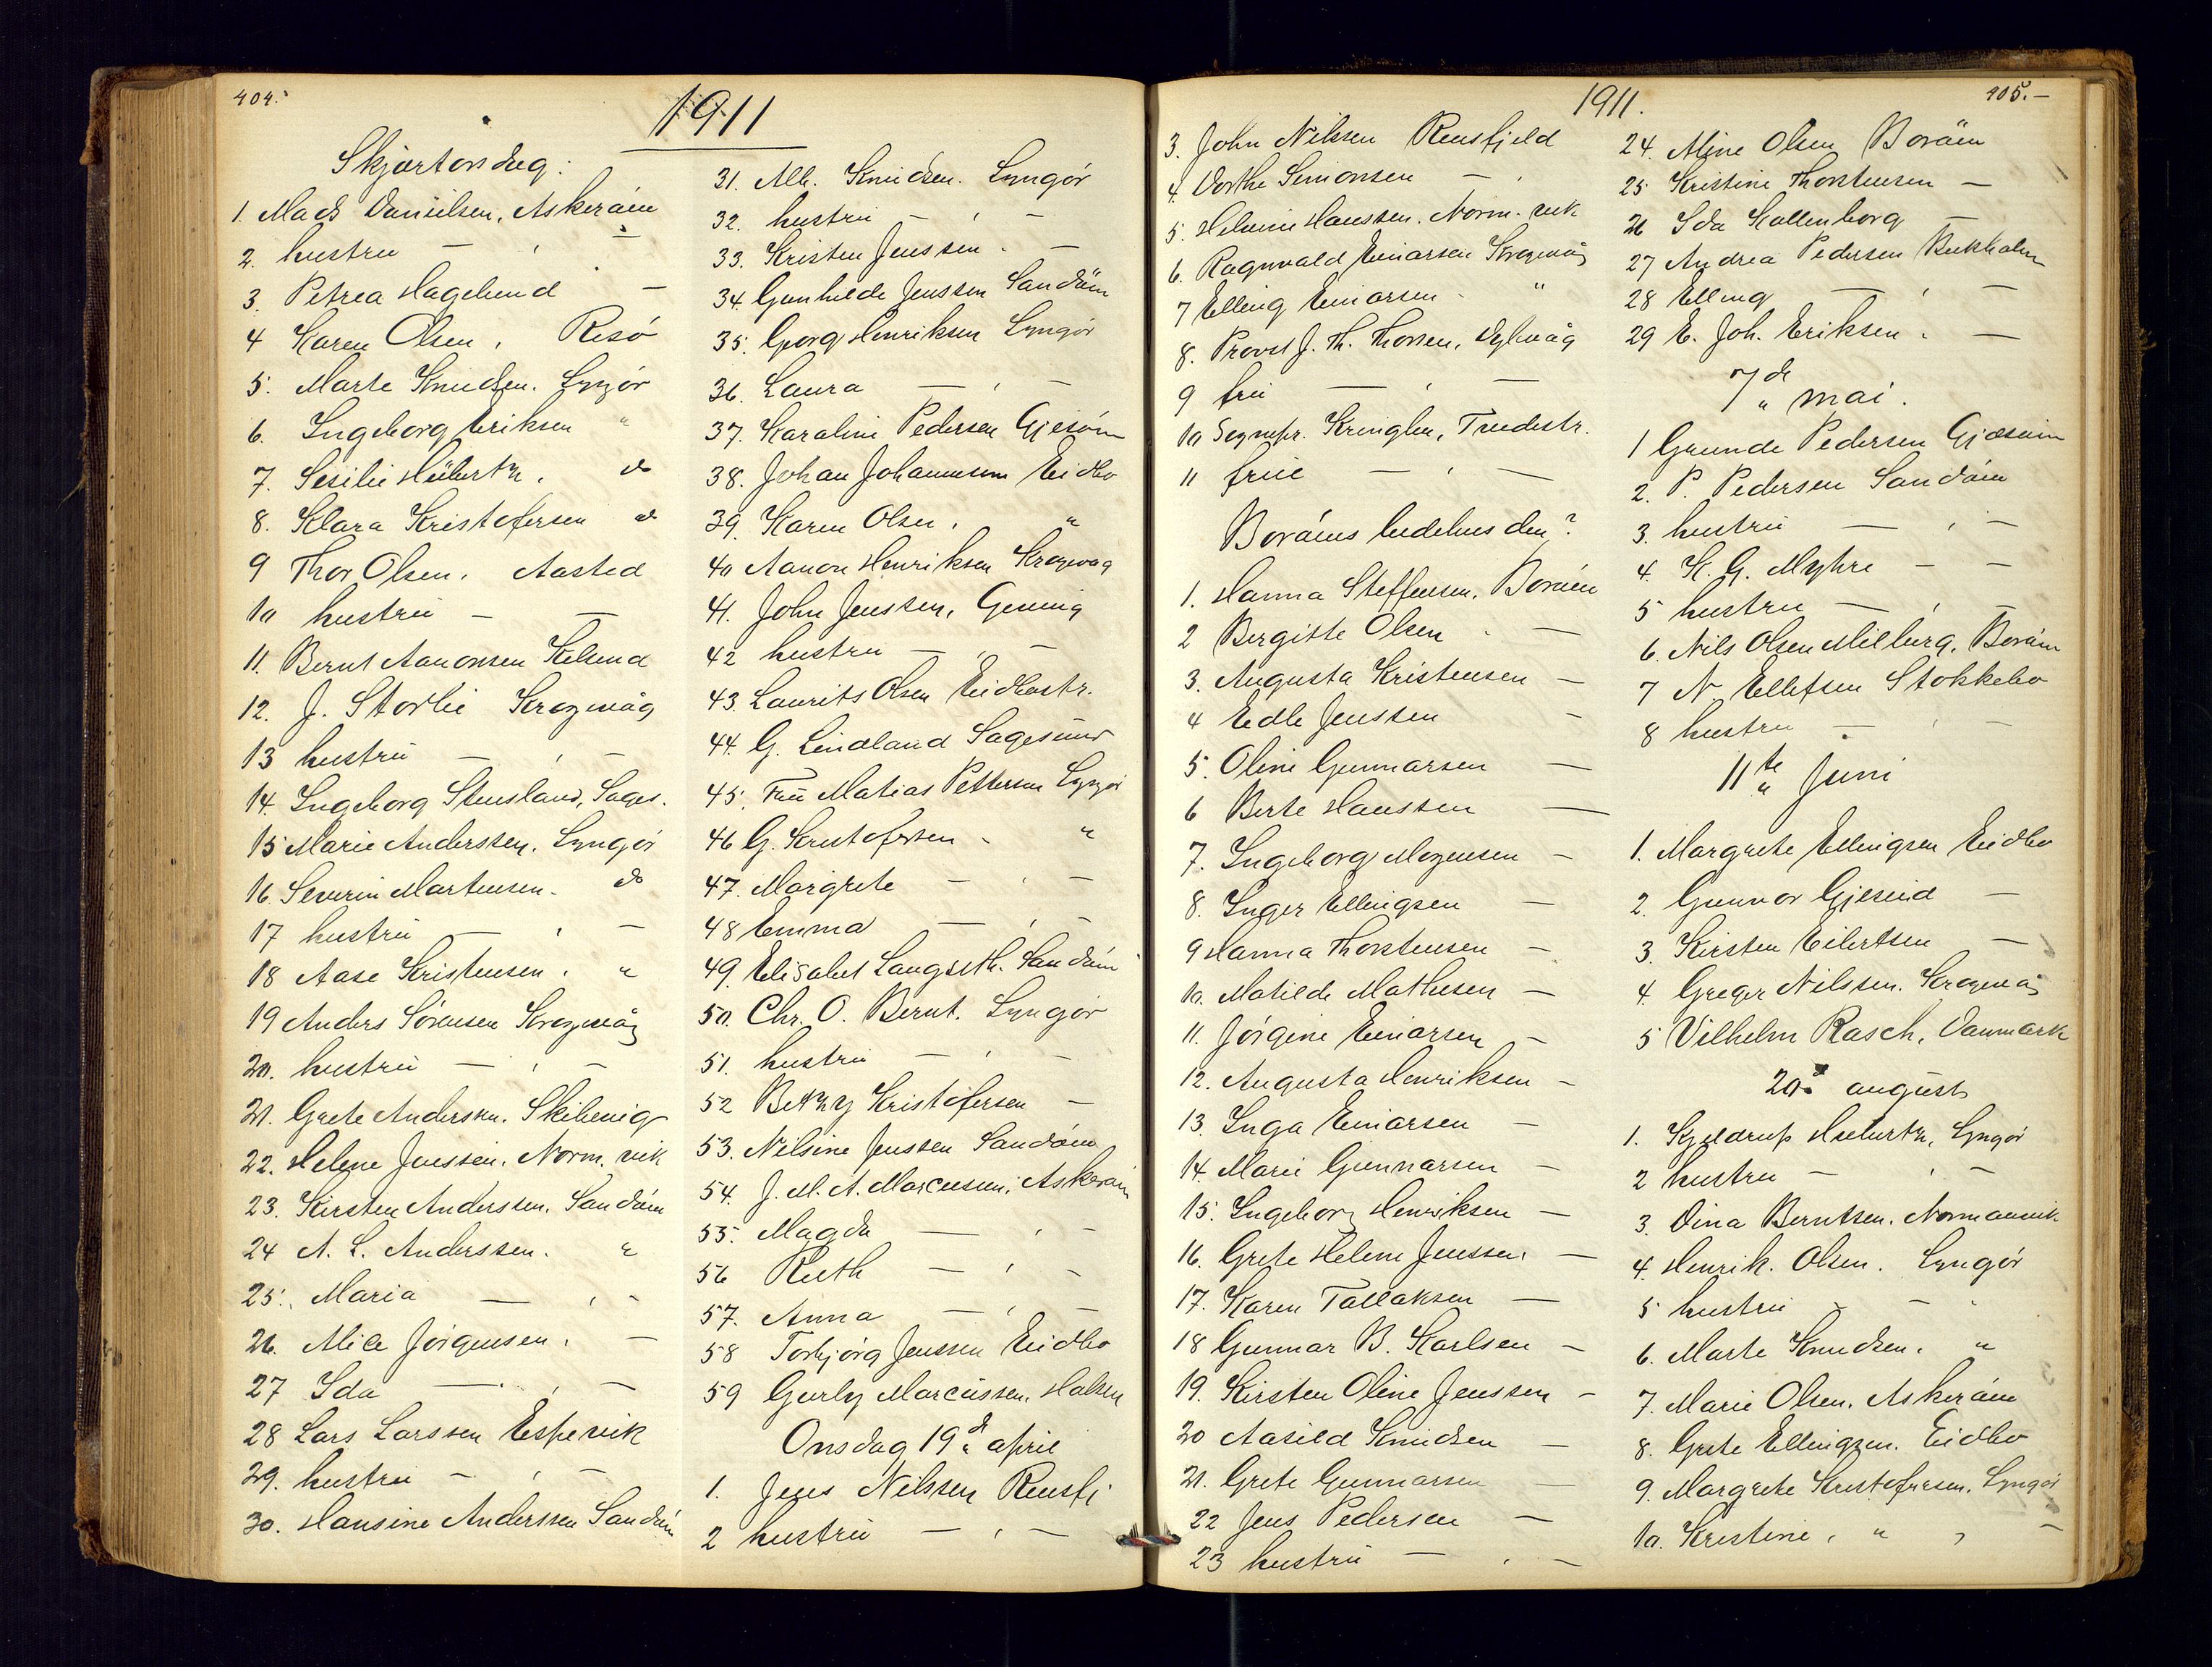 404.
1911
Skjærtorsdag:
1. Mads Danielsen, Askerøien
2. hustru — , —
3. Petrea Hagelund —
4 Karen Olsen, Risö
5. Marte Knudsen. Lyngör
6. Ingeborg Eriksen "
7. Sesilie Hübertz, do
8. Klara Kristofersen do
9 Thor Olsen. Aasted
10 hustru — —
11. Bernt Aanonsen Kilsund
12. J. Storlie Krogvåg
13 hustru — , —
14. Ingeborg Stensland, Sages.
15 Marie Anderssen. Lyngör
16. Severin Martensen. do
17 hustru — , —
18 Aase Kristensen. "
19 Anders Sörensen Krogvåg
20. hustru — , —
21. Grete Anderssen. Skibevig
22. Helene Jenssen. Norm. vik
23. Kirsten Anderssen. Sandöien
24 A. L. Anderssen. "
25. Maria — , -
26. Alice Jörgensen. —
27 Ida — , —
28 Lars Larssen Espevik
29. hustru — , —
30. Hansine Anderssen Sandöien
31. Alb. Knudsen. Lyngör
32. hustru — , —
33. Kristen Jenssen. —
34. Gunhilde Jenssen Sandöien
35. Georg Henriksen Lyngör
36. Laura — , —
37. Karaline Pedersen Gjesöien
38. Johan Johannesen Eidbo
39. Karen Olsen. "
40 Aanon Henriksen Krogvåg
41. John Jenssen, Gjeving
42 hustru — , —
43. Laurits Olsen Eidbostr.
44. G. Lindland Sagesund
45. Fru Matias Pettersen Lyngör
46 G. Kristofersen - "
47. Margrete — , —
48 Emma — , —
49. Elisabet Langseth. Sandöien
50. Chr. O. Bernt. Lyngör
51. hustru — , —
52 Bethzy Kristofersen —
53. Nilsine Jenssen Sandöien
54. J. M. A. Marcussen, Askeröien
55. Magda — , —
56 Ruth — , —
57. Anna — , —
58 Torbjörg Jenssen Eidbo
59 Gurly Marcüssen. Holsen
Onsdag 19de april
1. Jens Nilssen Rensfj.
2 hustru — , —
1911.
405.—
3. John Nilssen Rensfjeld
4. Dorthe Simonsen — ,
5. Helmine Hanssen. Norm. vik
6. Ragnvald Einarsen Krogvåg
7 Elling Einarsen - "
8. Provst J. Th. Thorsen, Dybvåg
9 fru — , —
10 Sognepr. Kringlen, Tvedestr.
11 frue — , —
Boröiens bedehus den ?
1. Hanna Steffensen. Boröien
2 Bergitte Olsen . —
3. Augusta Kristensen —
4 Edle Jenssen —
5. Oline Gunnarsen —
6 Berte Hanssen —
7. Ingeborg Mogensen —
8. Inger Ellingsen —
9 Hanna Thorstensen —
10. Matilde Mathisen —
11. Jörgine Einarsen —
12. Augusta Henriksen —
13. Inga Einarsen —
14. Marie Gunnarsen —
15. Ingeborg Henriksen —
16. Grete Helene Jenssen. —
17. Karen Tallaksen —
18 Gunnar B. Karlsen —
19. Kirsten Oline Jenssen —
20 Aasild Knudsen —
21. Grete Gunnarsen —
22 Jens Pedersen —
23 hustru — , —
24. Mine Olsen Boröien
25 Kristine Thorstensen —
26 Ida Kallenborg —
27 Andrea Pedersen Buskholm
28 Elling — , —
29 E. Joh. Eriksen . —
7de mai.
1 Gunde Pedersen Gjesöien
2. P. Pedersen Sandöien
3. hustru — , —
4. K. G. Myhre — —
5 hustru — , —
6. Nils Olsen Milberg, Boröien
7 N. Ellefsen Stokkebo
8 hustru — , —
11te Juni
1. Margrete Ellingsen Eidbo
2. Gunvor Gjesund —
3. Kirsten Eilertsen —
4. Greger Nilssen. Krogvåg
5 Vilhelm Rasch, Danmark
20d august
1. Kjeldrup Hübertz, Lyngör
2 hustru — , —
3. Dina Berntsen. Normannvik
4. Henrik. Olsen. Lyngör
5 hustru - - "
6. Marte Knudsen. "
7. Marie Olsen. Askeröien
8. Grete Ellingsen. Eidbo
9. Margrete Kristofersen. Lyngör
10. Kristine , " , —